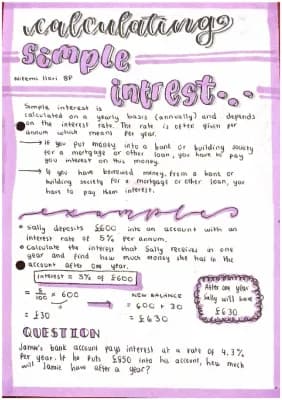 calculating
simple
Nitemi Ilori 8P
intrest...
Simple interest is
calculated on a yearly basis (annually) and depends
on the interest rate. The rate is often given per
annum which means per year.
→ If you put money into a bank or building society
for a mortgage or other loan, you have to pay
you interest on this money.
→ If you have borrowed money, from a bank or
building society for a mortgage or other loan, you
have to pay them interest.
examples
Sally deposits £600 into an account with an
interest rate of 5% per annum.
Calculate the interest that Sally receives in one
year and find how much money she has in the
account after one year.
interest = 5% of £600
= 5/100 × 600
= £30
→
NEW BALANCE
= 600 + 30
= £630
After one year
Sally will have
£630
QUESTION
Jamie's bank account pays interest at a rate of 4.3%
per year. If he puts £850 into his account, how much
will Jamie have after a year?